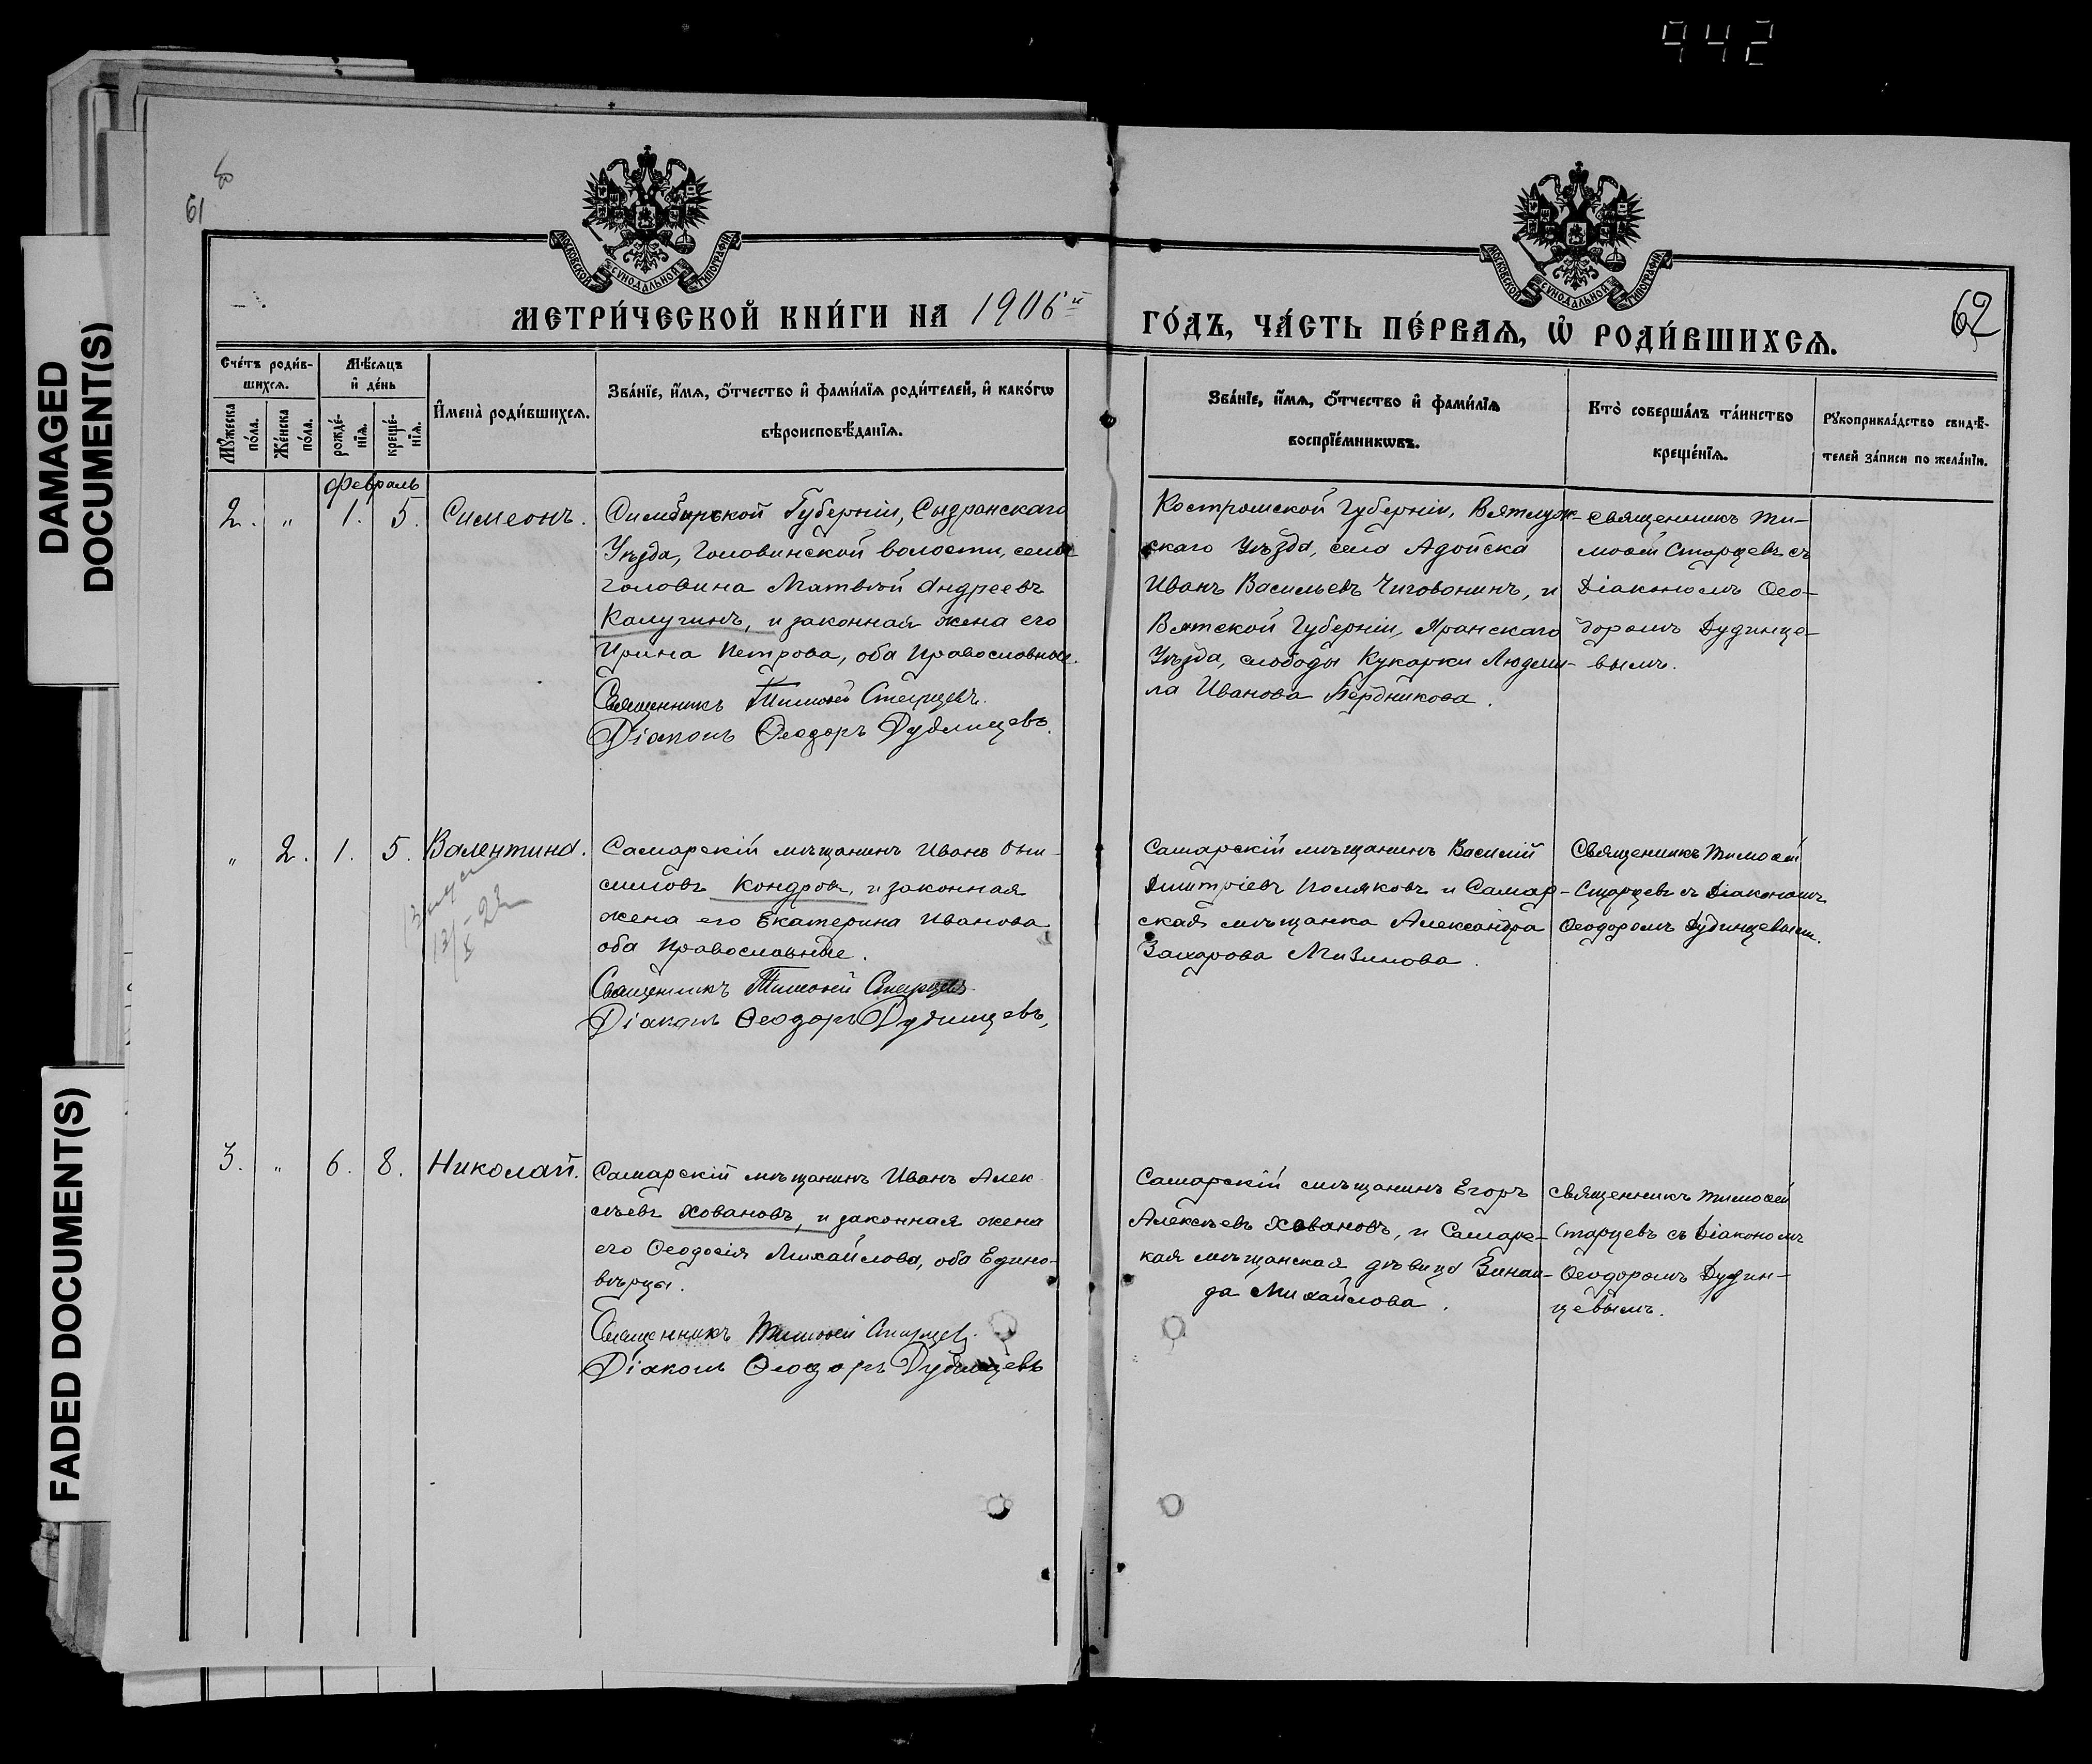 942
DAMAGED
DOCUMENT(S)
FADED DOCUMENT(S)
61
62
МОСКОВСКОЙ СѴНОДАЛЬНОЙ ТИПОГРАФІИ
МОСКОВСКОЙ СѴНОДАЛЬНОЙ ТИПОГРАФІИ
МЕТРИ́ЧЕСКОЙ КНИ́ГИ НА 1906й
ГО́ДЪ, ЧА́СТЬ ПЕ́РВАѦ, Ѡ҆ РОДИ́ВШИХСѦ.
Сче́тъ роди́в-
шихсѧ.
Мꙋ́жеска
по́ла.
Же́нска
по́ла.
Мѣ́сѧцъ
и҆ де́нь
рожде́-
нїѧ.
креще́-
нїѧ.
И҆мена̀ роди́вшихсѧ.
Зва́нїе, и҆́мѧ, ѻ҆́тчество и҆ фами́лїѧ роди́телей, и҆ како́гѡ
вѣроисповѣ́данїѧ.
Зва́нїе, и҆́мѧ, ѻ҆́тчество и҆ фами́лїѧ
воспрїе́мникѡвъ.
Кто̀ соверша́лъ та́инство
креще́нїѧ.
Рꙋкоприкла́дство свидѣ́-
телей за́писи по жела́нїю.
Февраль
2. " 1. 5. Симеонъ.
Симбирской Губерніи, Сызранскаго
Уѣзда, Головинской волости, села
Головина Матвѣй Андреевъ
Калугинъ, и законная жена его
Ирина Петрова, оба Православные.
Священникъ Тимоѳей Старцевъ.
Діаконъ Ѳеодоръ Дудинцевъ.
Костромской Губерніи, Ветлуж-
скаго Уѣзда, села
Иванъ Васильевъ и
Вятской Губерніи, Яранскаго
Уѣзда, слободы Кукарки Людми-
ла Иванова Бердникова.
Священникъ Ти-
моѳей Старцевъ съ
Діакономъ Ѳео-
доромъ Дудинце-
вымъ.
" 2. 1. 5. Валентина.
Самарскій мѣщанинъ Иванъ Они-
симовъ Кондровъ, и законная
жена его Екатерина Иванова
оба Православные.
Священникъ Тимоѳей Старцевъ
Діаконъ Ѳеодоръ Дудинцевъ,
Самарскій мѣщанинъ Василій
Дмитріевъ Поляковъ и Самар-
ская мѣщанка Александра
Захарова Мизинова.
Священникъ Тимоѳей
Старцевъ съ Діакономъ
Ѳеодоромъ Дудинцевымъ.
3. " 6. 8. Николай.
Самарскій мѣщанинъ Иванъ Алек
сѣевъ Ховановъ, и законная жена
его Ѳеодосія Михайлова, оба Едино-
вѣрцы.
Священникъ Тимоѳей Старцевъ.
Діаконъ Ѳеодоръ Дудинцевъ
Самарскій мѣщанинъ Егоръ
Алексѣевъ Ховановъ, и Самарс-
кая мѣщанская дѣвица Зинаи-
да Михайлова.
Священникъ Тимоѳей
Старцевъ съ Діакономъ
Ѳеодоромъ Дудин-
цевымъ.